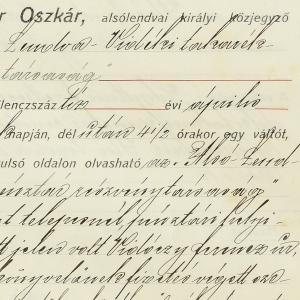 r Oszkár, alsólendvai királyi közjegyző
Lendva-Vidéki takarék-
társaság"
ilenczszáz tíz évi április
napján, dél után 4 1/2 órakor egy váltót,
tulsó oldalon olvasható, az "Alsó-Lend-
pénztár részvénytársaság"
t telepénél, pénztári helyi-
tt jelen volt Vidóczy Ferencz úr,
könyvelőnek fizetés végett